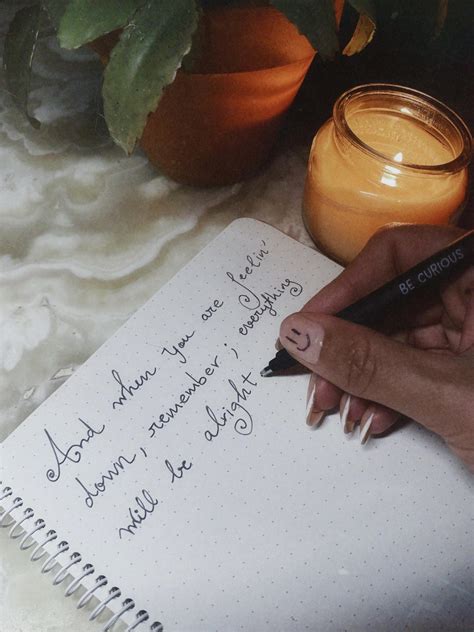 And when you are feelin'
down, remember; everything
will be alright
BE CURIOUS